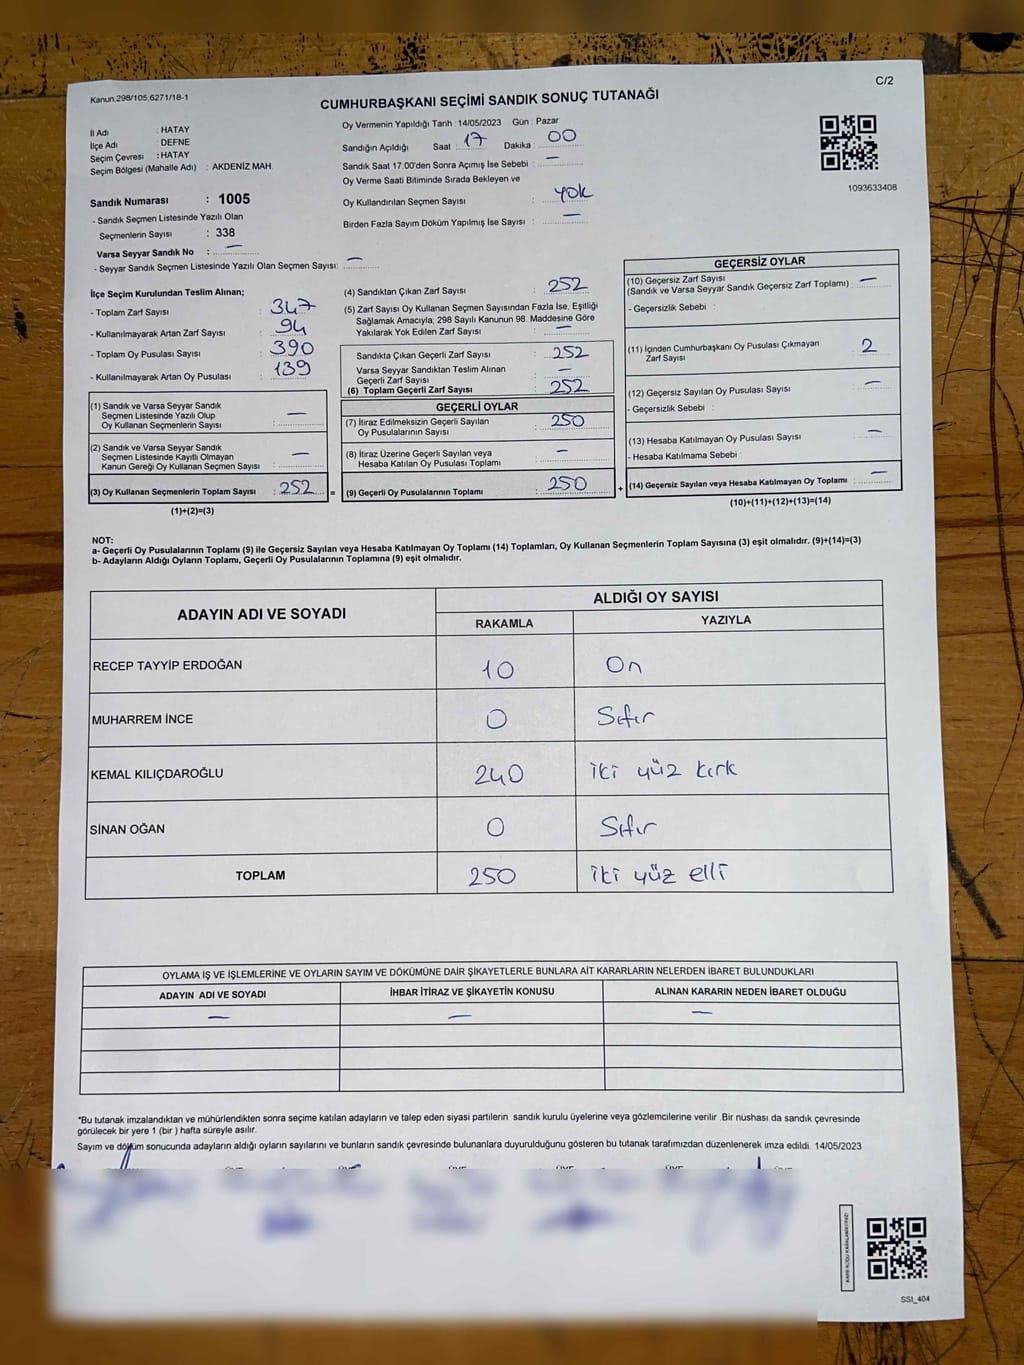 Kanun:298/105;6271/18-1
C/2
CUMHURBAŞKANI SEÇİMİ SANDIK SONUÇ TUTANAĞI
İl Adı : HATAY
İlçe Adı : DEFNE
Seçim Çevresi : HATAY
Seçim Bölgesi (Mahalle Adı) : AKDENİZ MAH.
Oy Vermenin Yapıldığı Tarih : 14/05/2023 Gün : Pazar
Sandığın Açıldığı Saat : 17 Dakika : 00
Sandık Saat 17:00'den Sonra Açımış İse Sebebi : —
Oy Verme Saati Bitiminde Sırada Bekleyen ve
Oy Kullandırılan Seçmen Sayısı : yok
Birden Fazla Sayım Döküm Yapılmış İse Sayısı : —
1093633408
Sandık Numarası : 1005
- Sandık Seçmen Listesinde Yazılı Olan
Seçmenlerin Sayısı : 338
Varsa Seyyar Sandık No : —
- Seyyar Sandık Seçmen Listesinde Yazılı Olan Seçmen Sayısı: —
İlçe Seçim Kurulundan Teslim Alınan;
- Toplam Zarf Sayısı : 347
- Kullanılmayarak Artan Zarf Sayısı : 94
- Toplam Oy Pusulası Sayısı : 390
- Kullanılmayarak Artan Oy Pusulası : 139
(1) Sandık ve Varsa Seyyar Sandık
Seçmen Listesinde Yazılı Olup
Oy Kullanan Seçmenlerin Sayısı : —
(2) Sandık ve Varsa Seyyar Sandık
Seçmen Listesinde Kayıtlı Olmayan
Kanun Gereği Oy Kullanan Seçmen Sayısı : —
(3) Oy Kullanan Seçmenlerin Toplam Sayısı : 252 =
(1)+(2)=(3)
(4) Sandıktan Çıkan Zarf Sayısı : 252
(5) Zarf Sayısı Oy Kullanan Seçmen Sayısından Fazla İse, Eşitliği
Sağlamak Amacıyla; 298 Sayılı Kanunun 98. Maddesine Göre
Yakılarak Yok Edilen Zarf Sayısı : —
Sandıkta Çıkan Geçerli Zarf Sayısı : 252
Varsa Seyyar Sandıktan Teslim Alınan
Geçerli Zarf Sayısı : —
(6) Toplam Geçerli Zarf Sayısı : 252
GEÇERLİ OYLAR
(7) İtiraz Edilmeksizin Geçerli Sayılan
Oy Pusulalarının Sayısı : 250
(8) İtiraz Üzerine Geçerli Sayılan veya
Hesaba Katılan Oy Pusulası Toplamı : —
(9) Geçerli Oy Pusulalarının Toplamı : 250 +
GEÇERSİZ OYLAR
(10) Geçersiz Zarf Sayısı
(Sandık ve Varsa Seyyar Sandık Geçersiz Zarf Toplamı) : —
- Geçersizlik Sebebi :
(11) İçinden Cumhurbaşkanı Oy Pusulası Çıkmayan
Zarf Sayısı : 2
(12) Geçersiz Sayılan Oy Pusulası Sayısı : —
- Geçersizlik Sebebi :
(13) Hesaba Katılmayan Oy Pusulası Sayısı : —
- Hesaba Katılmama Sebebi :
(14) Geçersiz Sayılan veya Hesaba Katılmayan Oy Toplamı : —
(10)+(11)+(12)+(13)=(14)
NOT:
a- Geçerli Oy Pusulalarının Toplamı (9) ile Geçersiz Sayılan veya Hesaba Katılmayan Oy Toplamı (14) Toplamları, Oy Kullanan Seçmenlerin Toplam Sayısına (3) eşit olmalıdır. (9)+(14)=(3)
b- Adayların Aldığı Oyların Toplamı, Geçerli Oy Pusulalarının Toplamına (9) eşit olmalıdır.
ADAYIN ADI VE SOYADI
ALDIĞI OY SAYISI
RAKAMLA YAZIYLA
RECEP TAYYİP ERDOĞAN 10 On
MUHARREM İNCE 0 Sıfır
KEMAL KILIÇDAROĞLU 240 iki yüz kırk
SİNAN OĞAN 0 Sıfır
TOPLAM 250 iki yüz elli
OYLAMA İŞ VE İŞLEMLERİNE VE OYLARIN SAYIM VE DÖKÜMÜNE DAİR ŞİKAYETLERLE BUNLARA AİT KARARLARIN NELERDEN İBARET BULUNDUKLARI
ADAYIN ADI VE SOYADI İHBAR İTİRAZ VE ŞİKAYETİN KONUSU ALINAN KARARIN NEDEN İBARET OLDUĞU
— — —
*Bu tutanak imzalandıktan ve mühürlendikten sonra seçime katılan adayların ve talep eden siyasi partilerin sandık kurulu üyelerine veya gözlemcilerine verilir .Bir nüshası da sandık çevresinde
görülecek bir yere 1 (bir ) hafta süreyle asılır.
Sayım ve döküm sonucunda adayların aldığı oyların sayılarını ve bunların sandık çevresinde bulunanlara duyurulduğunu gösteren bu tutanak tarafımızdan düzenlenerek imza edildi. 14/05/2023
SSI_404